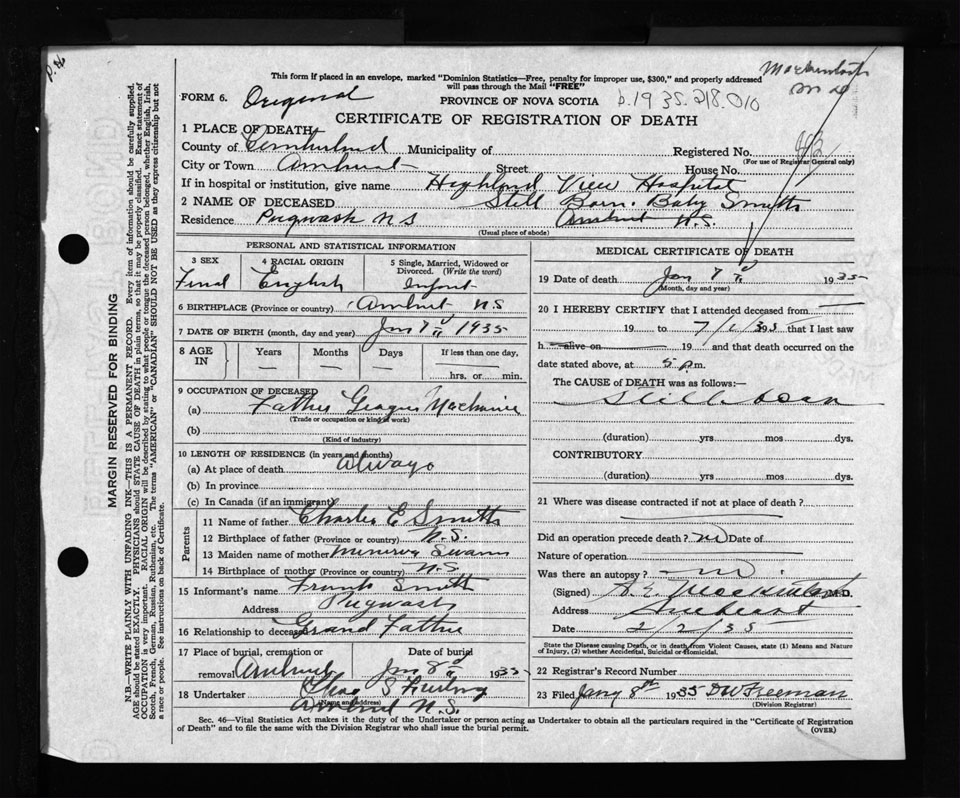 This form if placed in an envelope, marked "Dominion Statistics—Free, penalty for improper use, $300," and properly addressed
will pass through the Mail "FREE"
FORM 6. Original
PROVINCE OF NOVA SCOTIA
CERTIFICATE OF REGISTRATION OF DEATH
1 PLACE OF DEATH
County of Cumberland Municipality of Registered No.
(For use of Registrar General only)
City or Town Amherst Street House No.
If in hospital or institution, give name Highland View Hospital
2 NAME OF DECEASED Still Born. Baby Smith
Residence Pugwash N S Amherst N.S.
(Usual place of abode)
PERSONAL AND STATISTICAL INFORMATION
3 SEX
4 RACIAL ORIGIN English
5 Single, Married, Widowed or Divorced. (Write the word) Infant
6 BIRTHPLACE (Province or country) Amherst NS
7 DATE OF BIRTH (month, day and year) Jan 7 1935
8 AGE IN Years Months Days If less than one day, hrs. or min.
9 OCCUPATION OF DECEASED
(a) Father
(Trade or occupation or kind of work)
(b)
(Kind of industry)
10 LENGTH OF RESIDENCE (in years and months)
(a) At place of death always
(b) In province
(c) In Canada (if an immigrant)
Parents
11 Name of father Charles E Smith
12 Birthplace of father (Province or country) N.S.
13 Maiden name of mother Minerva Swann
14 Birthplace of mother (Province or country) N.S
15 Informant's name Frank Smith
Address Pugwash
16 Relationship to deceased Grand Father
17 Place of burial, cremation or removal Amherst
Date of burial Jan 8 1935
18 Undertaker Chas S
(Name and address)
Amherst N.S.
MEDICAL CERTIFICATE OF DEATH
19 Date of death Jan 7 1935
(Month, day and year)
20 I HEREBY CERTIFY that I attended deceased from
19 to 7/1/35 that I last saw
h alive on 19 and that death occurred on the
date stated above, at 5 p.m.
The CAUSE of DEATH was as follows:—
Still born
(duration) yrs mos dys.
CONTRIBUTORY
(duration) yrs mos dys.
21 Where was disease contracted if not at place of death?
Did an operation precede death? no Date of
Nature of operation
Was there an autopsy? no
(Signed) M.D.
Address Amherst
Date 2/2/35
State the Disease causing Death, or in death from Violent Causes, state (1) Means and Nature of Injury, (2) whether Accidental, Suicidal or Homicidal.
22 Registrar's Record Number
23 Filed Jany 8th 1935 DW Freeman
(Division Registrar)
Sec. 46—Vital Statistics Act makes it the duty of the Undertaker or person acting as Undertaker to obtain all the particulars required in the "Certificate of Registration
of Death" and to file the same with the Division Registrar who shall issue the burial permit. (OVER)
MARGIN RESERVED FOR BINDING
N.B.—WRITE PLAINLY WITH UNFADING INK—THIS IS A PERMANENT RECORD. Every item of information should be carefully supplied.
AGE should be stated EXACTLY. PHYSICIANS should STATE CAUSE OF DEATH in plain terms, so that it may be properly classified. Exact statement of
OCCUPATION is very important. RACIAL ORIGIN will be described by stating to what people or tongue the deceased person belonged, whether English, Irish,
Scotch, French, German, Russian, Ruthenian, etc. The terms "AMERICAN" or "CANADIAN" SHOULD NOT BE USED as they express citizenship but not
a race or people. See instructions on back of Certificate.